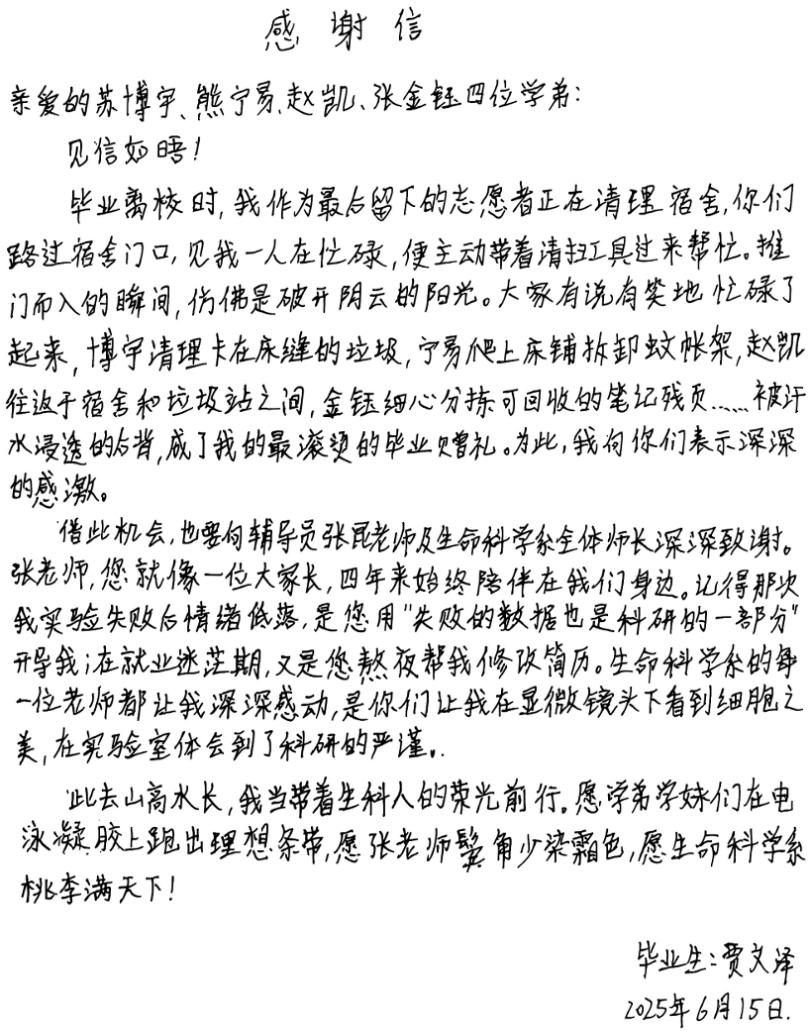 感谢信
亲爱的苏博宇、熊宁易、赵凯、张金钰四位学弟:
见信如晤!
毕业离校时,我作为最后留下的志愿者正在清理宿舍,你们
路过宿舍门口,见我一人在忙碌,便主动带着清扫工具过来帮忙。推
门而入的瞬间,仿佛是破开阴云的阳光。大家有说有笑地忙碌了
起来,博宇清理卡在床缝的垃圾,宁易爬上床铺拆卸蚊帐架,赵凯
往返于宿舍和垃圾站之间,金钰细心分拣可回收的笔记残页……被汗
水浸透的后背,成了我的最滚烫的毕业赠礼。为此,我向你们表示深深
的感激。
借此机会,也要向辅导员张昆老师及生命科学系全体师长深深致谢。
张老师,您就像一位大家长,四年来始终陪伴在我们身边。记得那次
我实验失败后情绪低落,是您用"失败的数据也是科研的一部分"
开导我;在就业迷茫期,又是您熬夜帮我修改简历。生命科学系的每
一位老师都让我深深感动,是你们让我在显微镜头下看到细胞之
美,在实验室体会到了科研的严谨。
此去山高水长,我当带着生科人的荣光前行。愿学弟学妹们在电
泳凝胶上跑出理想条带,愿张老师鬓角少染霜色,愿生命科学系
桃李满天下!
毕业生:贾文泽
2025年6月15日.